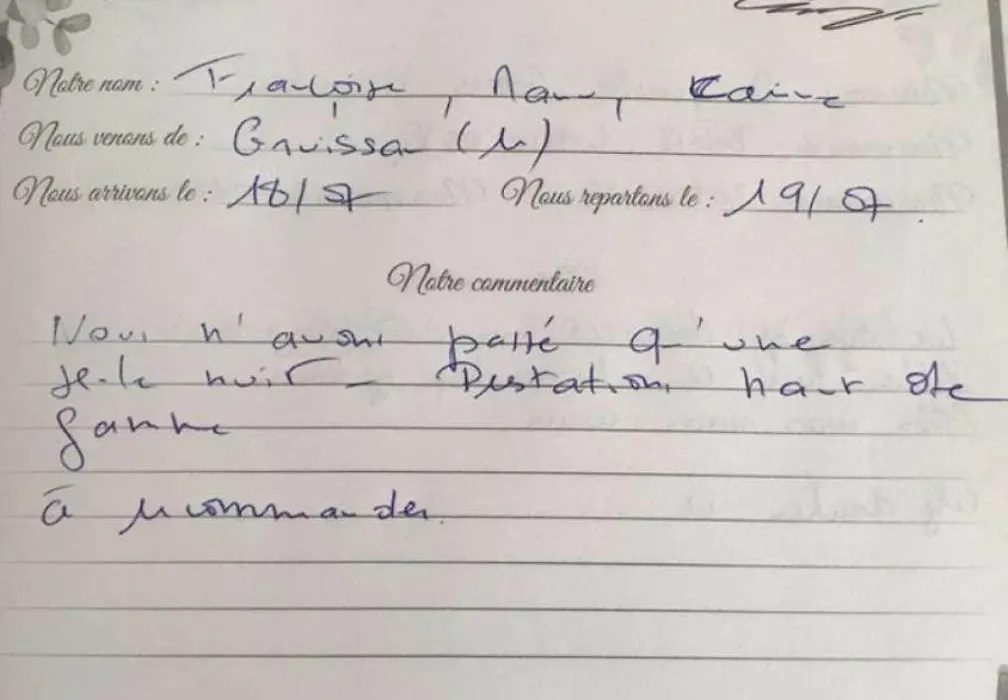 Notre nom : Françoise, Manu, Karine
Nous venons de : Gruissan (11)
Nous arrivons le : 18/07 Nous repartons le : 19/07.
Notre commentaire
Nous n'avons passé q'une
seule nuit - Prestations haut de
gamme
à recommander.